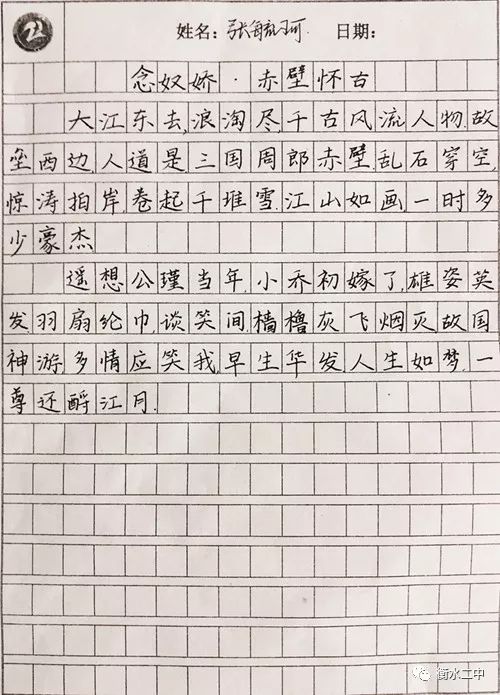 姓名: 张毓珂 日期:
念奴娇·赤壁怀古
大江东去,浪淘尽,千古风流人物.故
垒西边,人道是,三国周郎赤壁.乱石穿空,
惊涛拍岸,卷起千堆雪.江山如画,一时多
少豪杰
遥想公瑾当年,小乔初嫁了,雄姿英
发.羽扇纶巾,谈笑间,樯橹灰飞烟灭.故国
神游,多情应笑我,早生华发.人生如梦,一
尊还酹江月.
衡水二中